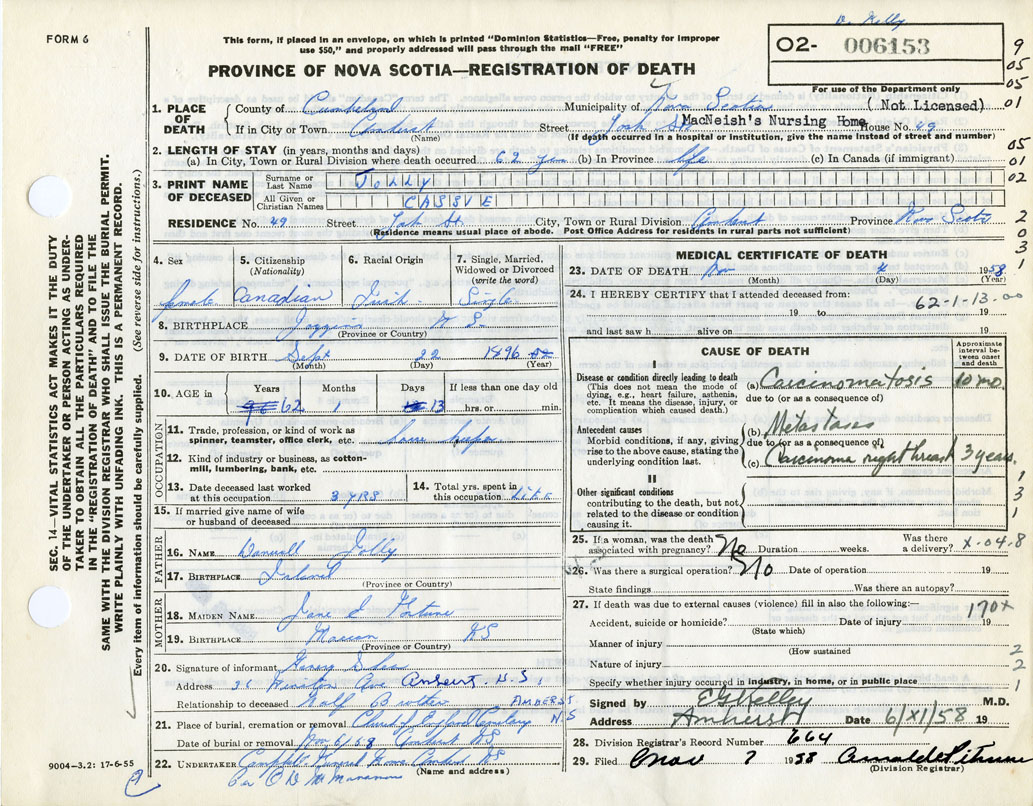 D. Kelly
FORM 6
This form, if placed in an envelope, on which is printed "Dominion Statistics—Free, penalty for improper
use $50," and properly addressed will pass through the mail "FREE"
O2- 006153
9
05
05
01
05
01
02
2
0
3
1
PROVINCE OF NOVA SCOTIA—REGISTRATION OF DEATH
For use of the Department only
1. PLACE OF DEATH
County of Cumberland Municipality of Nova Scotia (Not Licensed)
If in City or Town Amherst Street York St MacNeish's Nursing Home House No. 49
(Name) (If death occurred in a hospital or institution, give the name instead of street and number)
2. LENGTH OF STAY (in years, months and days)
(a) In City, Town or Rural Division where death occurred 62 yrs (b) In Province life (c) In Canada (if immigrant)
3. PRINT NAME OF DECEASED
Surname or Last Name JOLLY
All Given or Christian Names CASSIE
RESIDENCE No. 49 Street York St. City, Town or Rural Division Amherst Province Nova Scotia
(Residence means usual place of abode. Post Office Address for residents in rural parts not sufficient)
4. Sex 5. Citizenship (Nationality) 6. Racial Origin 7. Single, Married, Widowed or Divorced (write the word)
female Canadian Irish Single
8. BIRTHPLACE Joggins N S.
(Province or Country)
9. DATE OF BIRTH Sept 22 1896
(Month) (Day) (Year)
10. AGE in Years Months Days If less than one day old
62 1 13 hrs. or min.
OCCUPATION
11. Trade, profession or kind of work as spinner, teamster, office clerk, etc.
12. Kind of industry or business, as cotton-mill, lumbering, bank, etc.
13. Date deceased last worked at this occupation 3 YRS 14. Total yrs. spent in this occupation LIFE
15. If married give name of wife or husband of deceased
FATHER
16. NAME Jolly
17. BIRTHPLACE Ireland
(Province or Country)
MOTHER
18. MAIDEN NAME Jane Fortune
19. BIRTHPLACE Maccan NS
(Province or Country)
20. Signature of informant Henry
Address Winston Ave Amherst. N.S.
Relationship to deceased Half Brother AMHERST N S
21. Place of burial, cremation or removal Church of England Cemetery
Date of burial or removal Nov 6/58 Amherst NS
22. UNDERTAKER Campbells Funeral Home Amherst NS
(Name and address)
Per
9004—3.2: 17-6-55
SEC. 14—VITAL STATISTICS ACT MAKES IT THE DUTY
OF THE UNDERTAKER OR PERSON ACTING AS UNDER-
TAKER TO OBTAIN ALL THE PARTICULARS REQUIRED
IN THE "REGISTRATION OF DEATH" AND TO FILE THE
SAME WITH THE DIVISION REGISTRAR WHO SHALL ISSUE THE BURIAL PERMIT.
WRITE PLAINLY WITH UNFADING INK. THIS IS A PERMANENT RECORD.
Every item of information should be carefully supplied. (See reverse side for instructions.)
MEDICAL CERTIFICATE OF DEATH
23. DATE OF DEATH Nov 4 1958
(Month) (Day) (Year)
24. I HEREBY CERTIFY that I attended deceased from: 62-1-13-00
19 to 19
and last saw h alive on 19
CAUSE OF DEATH
Approximate interval between onset and death
I
Disease or condition directly leading to death
(This does not mean the mode of dying, e.g., heart failure, asthenia, etc. It means the disease, injury, or complication which caused death.)
(a) Carcinomatosis 10 mo.
due to (or as a consequence of)
Antecedent causes
Morbid conditions, if any, giving rise to the above cause, stating the underlying condition last.
(b) Metastases
due to (or as a consequence of)
(c) Carcinoma right breast 3 years.
II
Other significant conditions
contributing to the death, but not related to the disease or condition causing it.
1
3
1
25. If a woman, was the death associated with pregnancy? No Duration weeks. Was there a delivery? X-04-8
26. Was there a surgical operation? No Date of operation 19
State findings Was there an autopsy?
27. If death was due to external causes (violence) fill in also the following:— 170x
Accident, suicide or homicide? Date of injury 19
(State which)
Manner of injury
(How sustained
Nature of injury
2
2
1
Specify whether injury occurred in industry, in home, or in public place
Signed by EG Kelley M.D.
Address Amherst Date 6/XI/58 19
28. Division Registrar's Record Number 664
29. Filed Nov 7 1958
(Division Registrar)